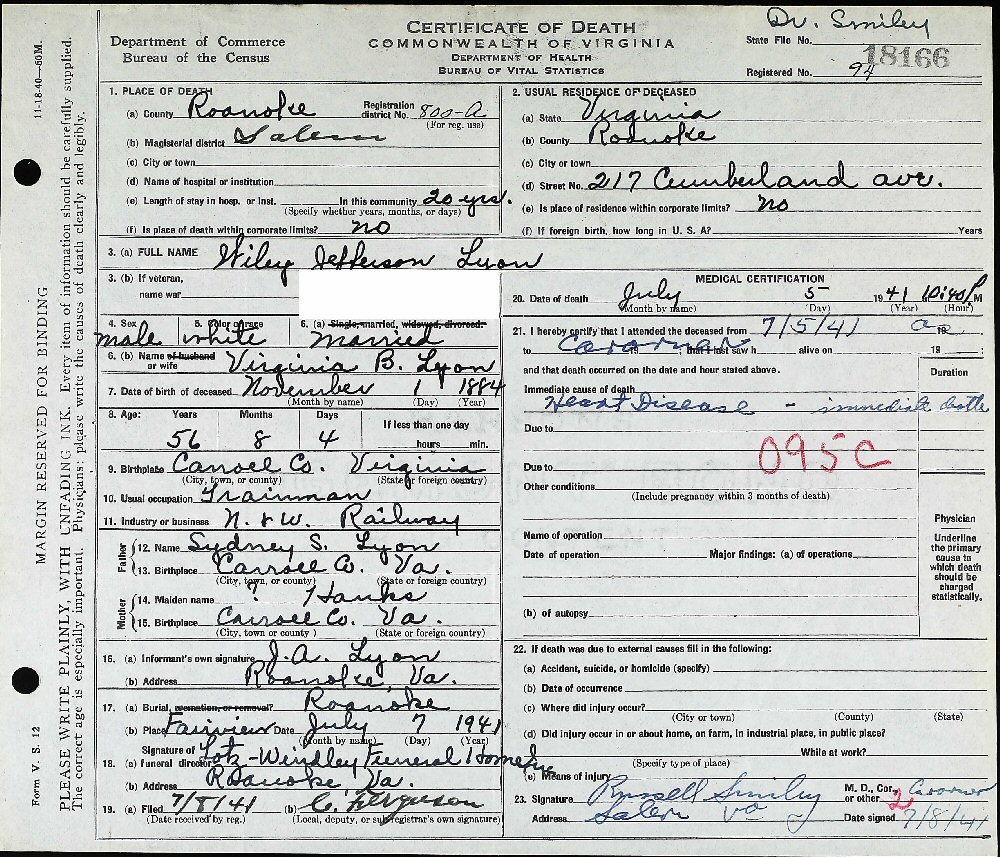 Dr. Smiley
CERTIFICATE OF DEATH
COMMONWEALTH OF VIRGINIA
DEPARTMENT OF HEALTH
BUREAU OF VITAL STATISTICS
Department of Commerce
Bureau of the Census
State File No. 18166
Registered No. 94
11-18-40—60M.
MARGIN RESERVED FOR BINDING
PLEASE WRITE PLAINLY, WITH UNFADING INK. Every item of information should be carefully supplied.
The correct age is especially important. Physicians: please write the causes of death clearly and legibly.
Form V. S. 12
1. PLACE OF DEATH
(a) County Roanoke Registration district No. 800-A
(For reg. use)
(b) Magisterial district Salem
(c) City or town
(d) Name of hospital or institution
(e) Length of stay in hosp. or inst. In this community 20 yrs.
(Specify whether years, months, or days)
(f) Is place of death within corporate limits? no
2. USUAL RESIDENCE OF DECEASED
(a) State Virginia
(b) County Roanoke
(c) City or town
(d) Street No. 217 Cumberland ave.
(e) Is place of residence within corporate limits? no
(f) If foreign birth, how long in U. S. A? Years
3. (a) FULL NAME Wiley Jefferson Lyon
3. (b) If veteran,
name war
4. Sex male
5. Color or race white
6. (a) Single, married, widowed, divorced: married
6. (b) Name of husband or wife Virginia B. Lyon
7. Date of birth of deceased November 1 1884
(Month by name) (Day) (Year)
8. Age: Years Months Days If less than one day
56 8 4 hours min.
9. Birthplace Carroll Co. Virginia
(City, town, or county) (State or foreign country)
10. Usual occupation Trainman
11. Industry or business N. & W. Railway
Father
12. Name Sydney S. Lyon
13. Birthplace Carroll Co. Va.
(City, town, or county) (State or foreign country)
Mother
14. Maiden name ? Hanks
15. Birthplace Carroll Co. Va.
(City, town or county ) (State or foreign country)
16. (a) Informant's own signature J. A. Lyon
(b) Address Roanoke, Va.
17. (a) Burial, cremation, or removal? Roanoke
(b) Place Fairview Date July 7 1941
(Month by name) (Day) (Year)
18. Signature of (a) funeral director Lotz-Windley Funeral Home
(b) Address Roanoke, Va.
19. (a) Filed 7/8/41 (b) C. Ferguson
(Date received by reg.) (Local, deputy, or sub registrar's own signature)
MEDICAL CERTIFICATION
20. Date of death July 5 1941 10:40 P M
(Month by name) (Day) (Year) (Hour)
21. I hereby certify that I attended the deceased from 7/5/41 as 19
to Coroner 19 ; that I last saw h alive on 19 ;
and that death occurred on the date and hour stated above.
Duration
Immediate cause of death
Heart Disease - immediate death
Due to
Due to
095C
Other conditions
(Include pregnancy within 3 months of death)
Name of operation
Date of operation Major findings: (a) of operations
(b) of autopsy
Physician
Underline the primary cause to which death should be charged statistically.
22. If death was due to external causes fill in the following:
(a) Accident, suicide, or homicide (specify)
(b) Date of occurrence
(c) Where did injury occur?
(City or town) (County) (State)
(d) Did injury occur in or about home, on farm, in industrial place, in public place?
While at work?
(Specify type of place)
(e) Means of injury
23. Signature Russell Smiley M. D., Cor., or other Coroner
2
Address Salem Va Date signed 7/8/41